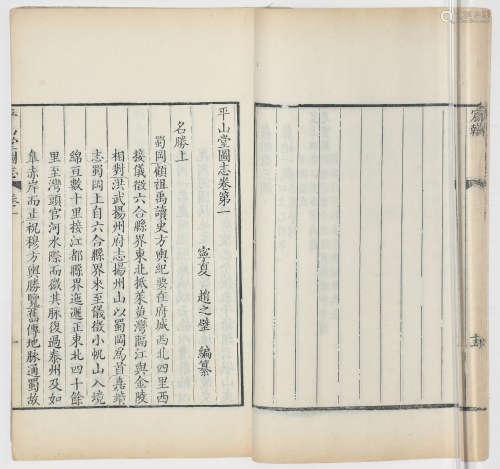 平山堂圖志卷第一
寧夏 趙之璧 編纂
名勝上
蜀岡顧祖禹讀史方輿紀要在府城西北四里西
接儀徵六合縣界東北抵茱萸灣隔江與金陵
相對洪武揚州府志揚州山以蜀岡爲首嘉靖
志蜀岡上自六合縣界來至儀徵小帆山入境
綿亘數十里接江都縣界迤邐正東北四十餘
里至灣頭官河水際而微其脉復過泰州及如
臯赤岸而止祝穆方輿勝覽舊傳地脉通蜀故
平山堂圖志 卷一
一